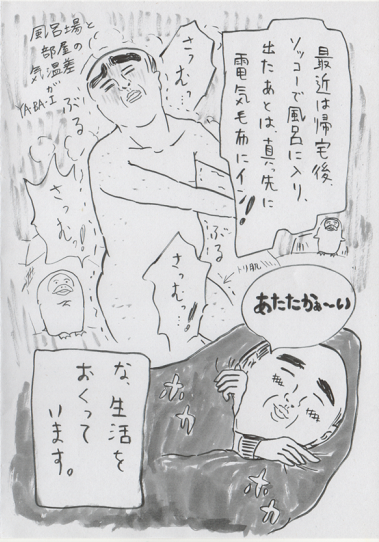 最近は帰宅後
ソッコーで風呂に入り、
出たあとは、真っ先に
電気毛布にイン!
風呂場と
部屋の
気温差
が
YABA・I
さっむっ…
ぶる
ぶる
さっむっ!
さっむ…!!
トリ肌
あたたかぁ〜い
ホカ
ホカ
な、生活を
おくって
います。